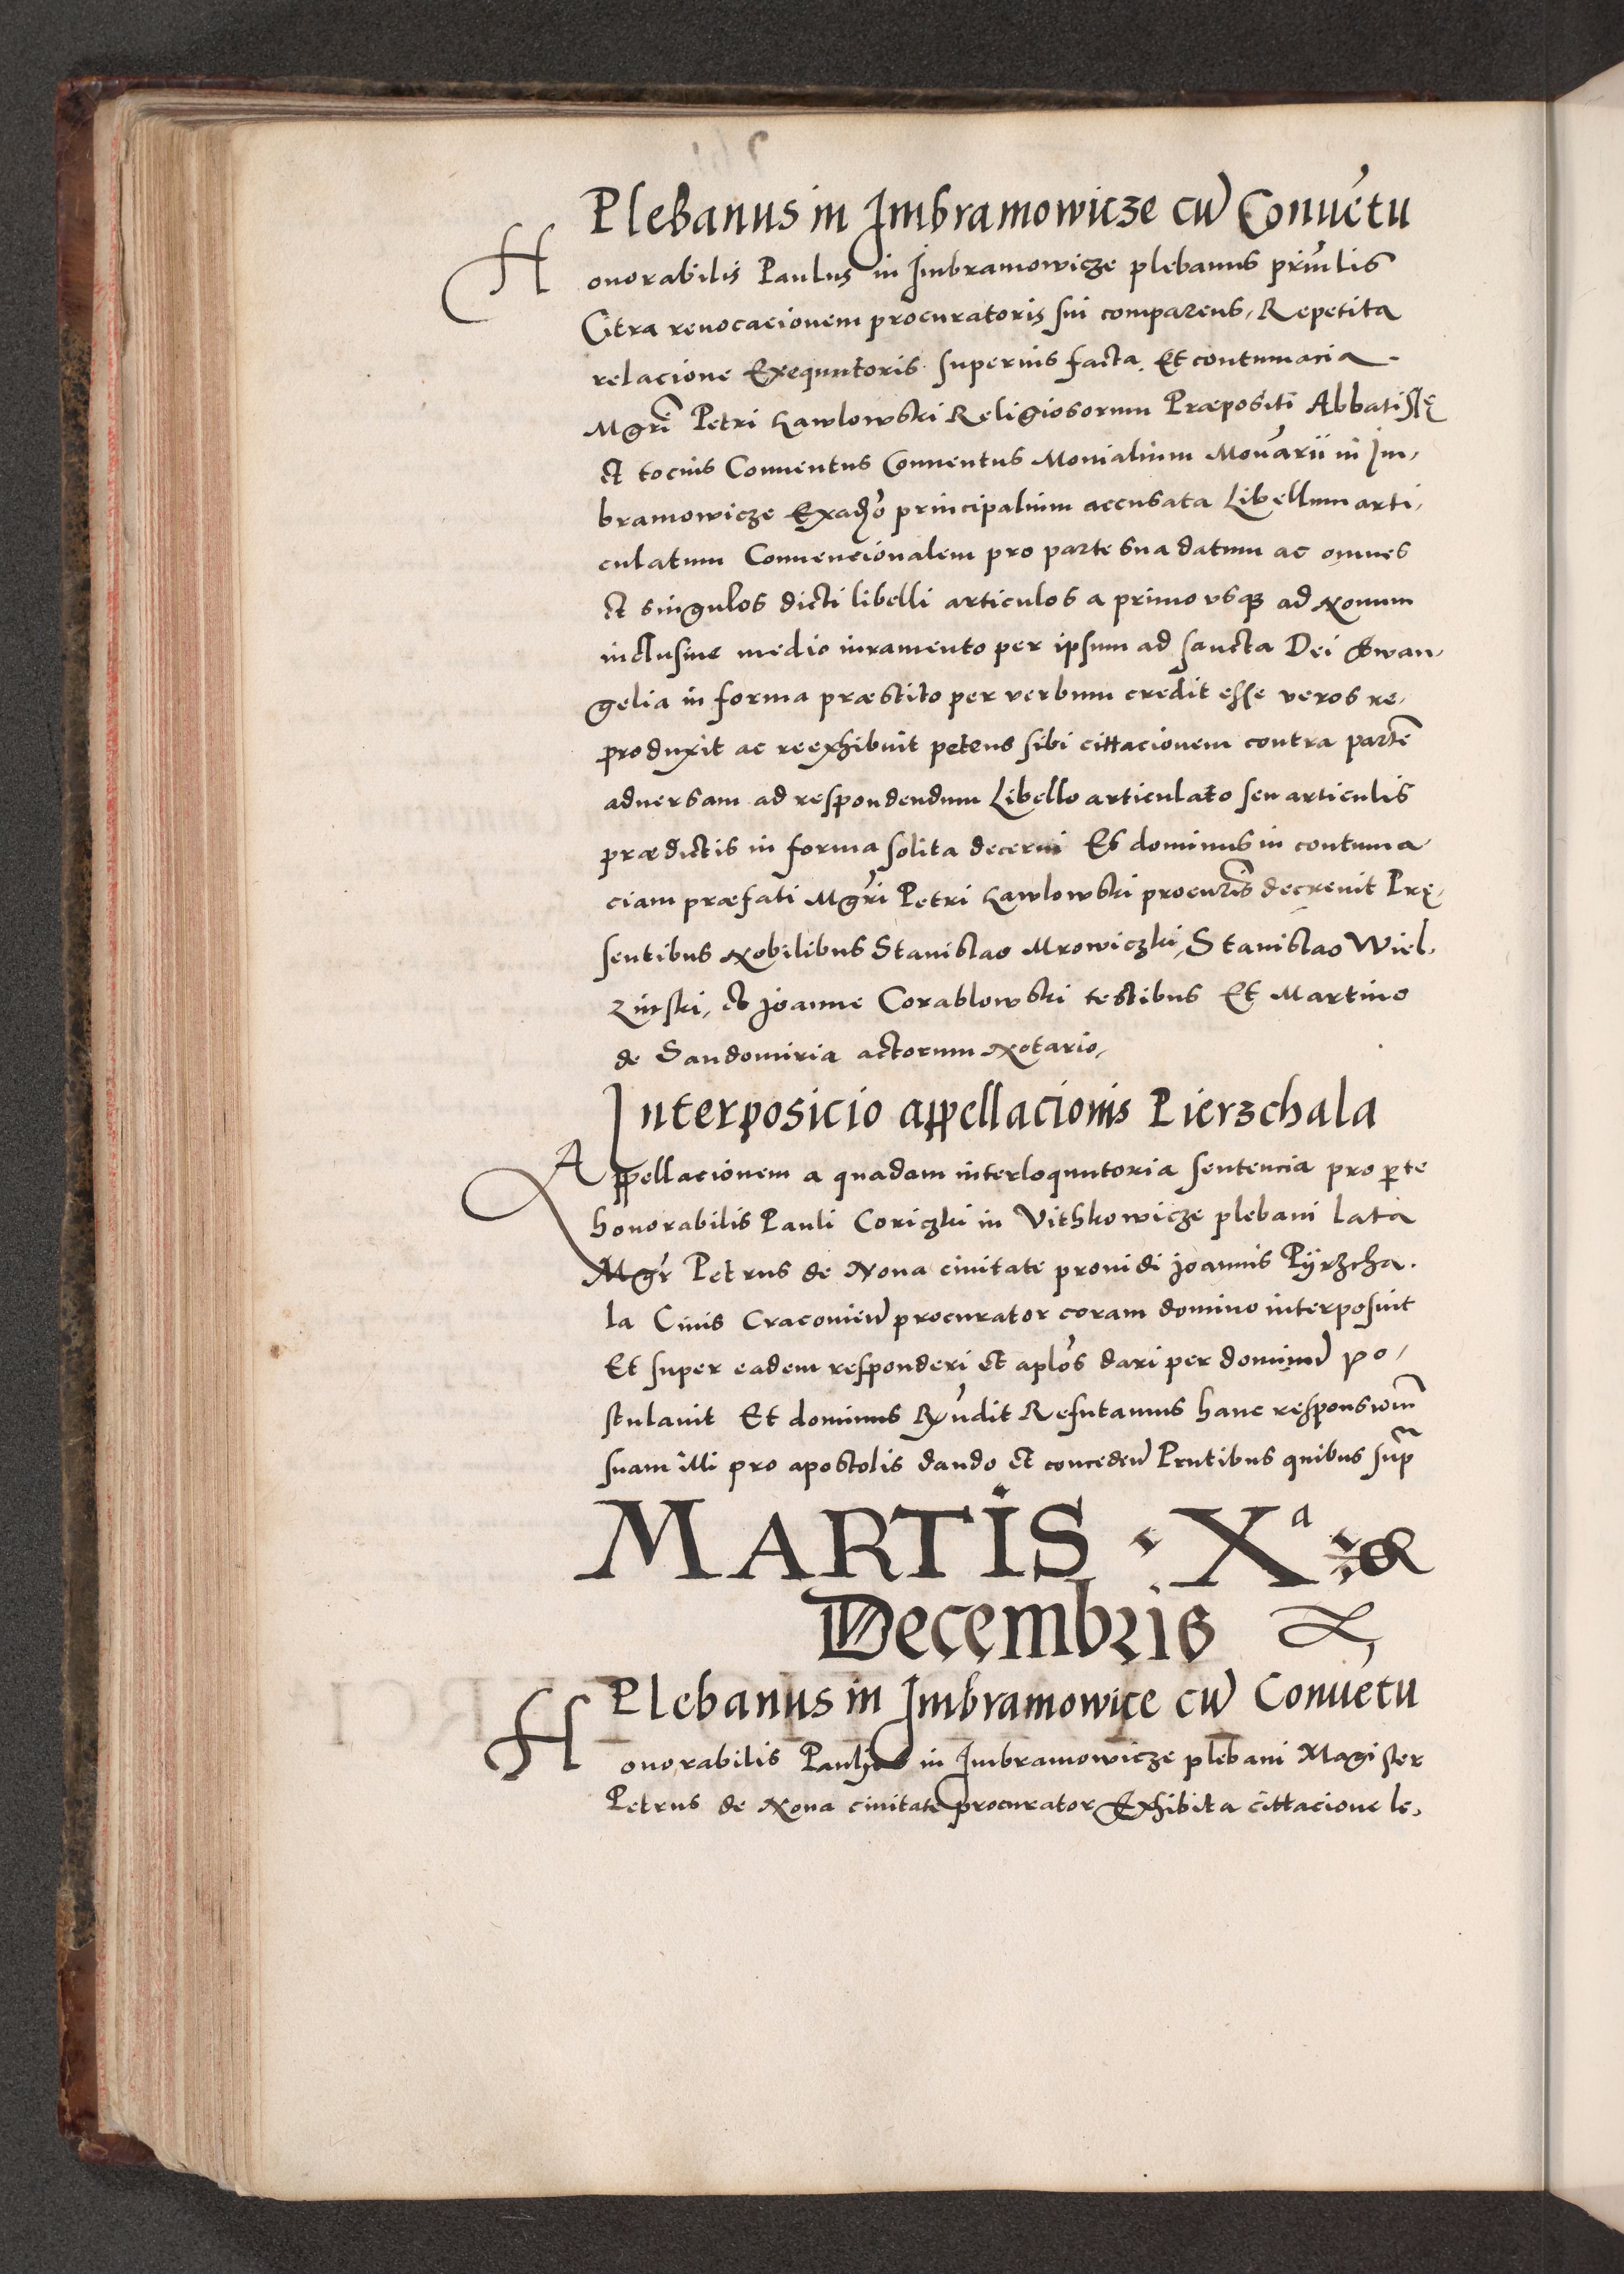 Plebanus in Imbramowicze cu͂ Conue͂tu
Honorabilis Paulus in Imbramowicze plebanus prin͂lis
Citra reuocacionem procuratoris sui comparens, Repetita
relacione Exequutoris superius facta. Et contumacia
Mgri͂ Petri Kawlowski Religiosorum Præpositi Abbatissę
et tocius Conuentus Conuentus Monialium Mon͂arii in Im,
bramowicze principalium accusata Libellum arti,
culatum Conuencionalem pro parte sua datum ac omnes
et singulos dicti libelli articulos a primo vsqꝫ ad Nonum
inclusiue medio iuramento per ipsum ad sancta Dei Ewan,
gelia in forma præstito per verbum credit esse veros re,
produxit ac reexhibuit petens sibi cittacionem contra parte͂
aduersam ad respondendum Libello articulato seu articulis
prædictis in forma solita decerni Et dominus in contuma
ciam præfati Mgri͂ Petri Kawlowski procur͂is decreuit Prę,
sentibus Nobilibus Stanislao Mrowiczki, Stanislao Wiel,
Zinski, et Joanne Corablowski testibus Et Martino
de Sandomiria actorum Notario,
Interposicio appellacionis Pierzchala
Appellacionem a quadam interloquutoria sentencia pro ꝑte
honorabilis Pauli Coriczki in Vithkowicze plebani lata
Mgr͂ Petrus de Noua ciuitate prouidi Joannis Pÿrzcha.
la Ciuis Cracouien͂ procurator coram domino interposuit
Et super eadem responderi et aplo͂s dari per dominu͂ po,
stulauit Et dominus Rn͂dit Refutamus hanc responsiom͂
suam illi pro apostolis dando et conceden͂ Prntibus quibus sup͂
MARTIS · Xª
Decembris
Plebanus in Imbramowice cu͂ Conue͂tu
Honorabilis Pauli in Imbramowicze plebani Magister
Petrus de Noua ciuitate procurator Exhibita cittacione le,